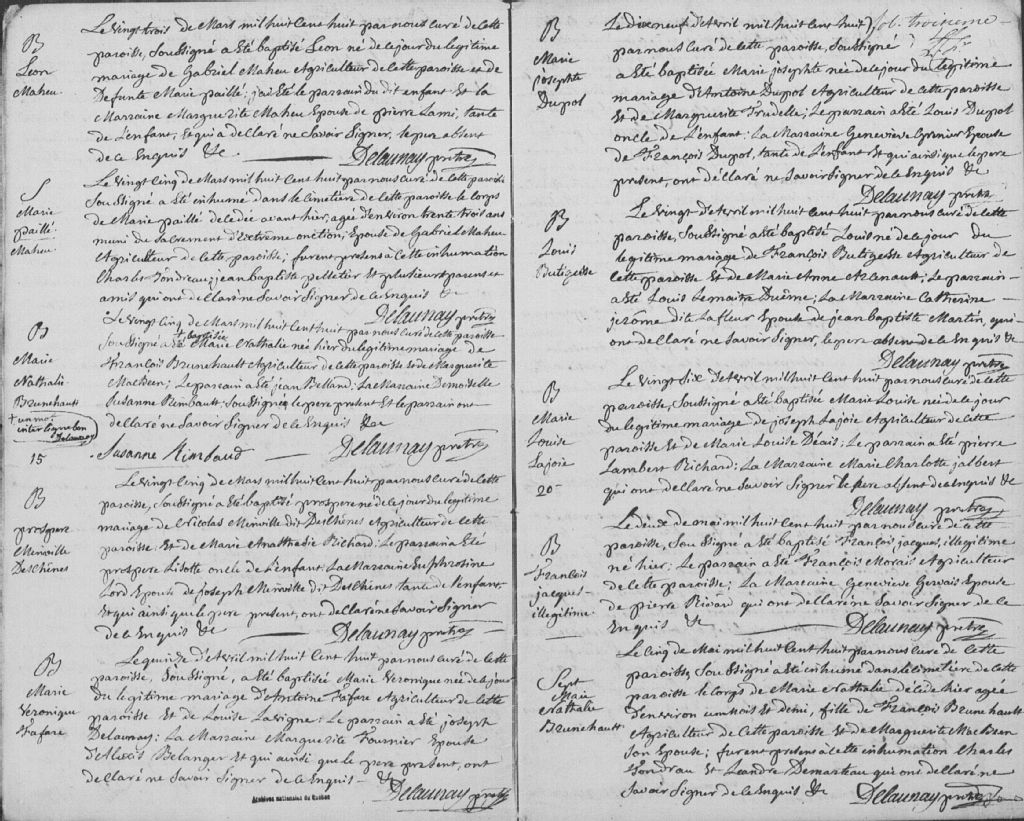 B
Leon
Maheu
Le vingt trois de Mars mil huit Cent huit par nous curé de cette
paroisse, Soussigné a Eté baptisé Leon né de le jour du legitime
mariage de Gabriel Maheu Agriculteur de cette paroisse et de
Defunte Marie paillé; j'ai Eté le parrain du dit enfant Et la
Marraine Marguerite Maheu Epouse de pierre Lami, tante
de L'enfant, Et qui a declaré ne Savoir Signer, le pere absent
de ce Enquis &c
Delaunay prtre
S
Marie
paillé
Maheu
Le Vingt Cinq de Mars mil huit Cent huit par nous curé de cette paroisse
Soussigné a Eté inhumé dans le Cimetiere de cette paroisse le Corps
de Marie paillé decedée avant hier, agé d'Environ trente trois ans
muni du Sacrement d'Extrême onction, Epouse de Gabriel Maheu
Agriculteur de cette paroisse; furent presens a cette inhumation
Charles Fondreau, jean baptiste pelletier Et plusieurs parens et
amis qui ont declaré ne Savoir Signer de ce Enquis &c
Delaunay prtre
B
Marie
Nathalie
Brunehault
+ un mot
interligne bon
Delaunay
15
Le Vingt Cinq de Mars mil huit Cent huit par nous curé de cette paroisse
Soussigné a Eté baptisée Marie Nathalie née hier du legitime mariage de
François Brunehault Agriculteur de cette paroisse et de Marguerite
Macbeen; Le parrain a Eté jean Belland; La Marraine Demoiselle
Susanne Rimbault; Soussignée le pere present Et le parrain ont
declaré ne Savoir Signer de ce Enquis &c
Susanne Rimbaud
Delaunay prtre
B
prospere
Miniville
DesChênes
Le Vingt Cinq de Mars mil huit Cent huit par nous curé de cette
paroisse, Soussigné a Eté baptisé prospere né de le jour du legitime
mariage de Nicolas Miniville dit DesChênes Agriculteur de cette
paroisse Et de Marie Anathalie Richard: Le parrain a Eté
prospere Lisotte oncle de l'enfant La Marraine Euphrosine
Lord Epouse de joseph Miniville dit DesChênes tante de l'enfant
Et qui ainsi que le pere present, ont declaré ne Savoir Signer
de ce Enquis &c
Delaunay prtre
B
Marie
Veronique
Fafare
Le quinze d'Avril mil huit Cent huit par nous curé de cette
paroisse, Soussigné, a Eté baptisée Marie Veronique née de le jour
du legitime mariage D'Antoine Fafare Agriculteur de cette
paroisse Et de Louise Lavigne: Le parrain a Eté joseph
Delaunay: La Marraine Marguerite Fournier Epouse
d'Alexis Belanger Et qui ainsi que le pere present, ont
declaré ne Savoir Signer de ce Enquis &c
Delaunay prtre
Archives nationales du Québec
fol. troisieme
B
Marie
josephte
Dupol
Le Dix neuf d'Avril mil huit Cent huit
par nous curé de cette paroisse, Soussigné
a Eté baptisée Marie josephte née de le jour du legitime
mariage d'Antoine Dupol Agriculteur de cette paroisse
Et de Marguerite Trudelle; Le parrain a Eté Louis Dupol
oncle de l'enfant: La Marraine Genevieve Grenier Epouse
de François Dupol, tante de L'enfant Et qui ainsi que le pere
present, ont declaré ne Savoir Signer de ce Enquis &c
Delaunay prtre
B
Louis
Butegesse
Le Vingt d'Avril mil huit Cent huit par nous curé de cette
paroisse, Soussigné a Eté baptisé Louis né de le jour du
legitime mariage de François Butegesse Agriculteur de
cette paroisse Et de Marie Anne Arsenault; Le parrain
a Eté Louis Lemaitre Duême; La Marraine Catherine
jerôme dite La fleur Epouse de jean baptiste Martin, qui
ont declaré ne Savoir Signer, le pere absent de ce Enquis &c
Delaunay prtre
B
Marie
Louise
Lajoie
20
Le Vingt Six d'Avril mil huit Cent huit par nous curé de cette
paroisse, Soussigné a Eté baptisée Marie Louise née de le jour
du legitime mariage de joseph Lajoie Agriculteur de cette
paroisse Et de Marie Louise Deais: Le parrain a Eté pierre
Lambert Richard: La Marraine Marie Charlotte jalbert
qui ont declaré ne Savoir Signer le pere absent de ce Enquis &c
Delaunay prtre
B
François
jacques
illegitime
Le deux de mai mil huit Cent huit par nous curé de cette
paroisse, Soussigné a Eté baptisé François, jacques, illegitime
né hier: Le parrain a Eté François Morais Agriculteur
de cette paroisse; La Marraine Genevieve Gervais Epouse
de pierre Rivard qui ont declaré ne Savoir Signer de ce
Enquis &c
Delaunay prtre
Sept
Marie
Nathalie
Brunehault
Le Cinq de Mai mil huit Cent huit par nous curé de cette
paroisse, Soussigné a Eté inhumé dans le Cimetiere de cette
paroisse le Corps de Marie Nathalie decedée hier agée
d'environ un mois Et demi, fille de François Brunehault
Agriculteur de cette paroisse Et de Marguerite Macbeen
Son Epouse; furent presens a cette inhumation Charles
Fondrau Et Leandre Demarteau qui ont declaré ne
Savoir Signer de ce Enquis &c
Delaunay prtre